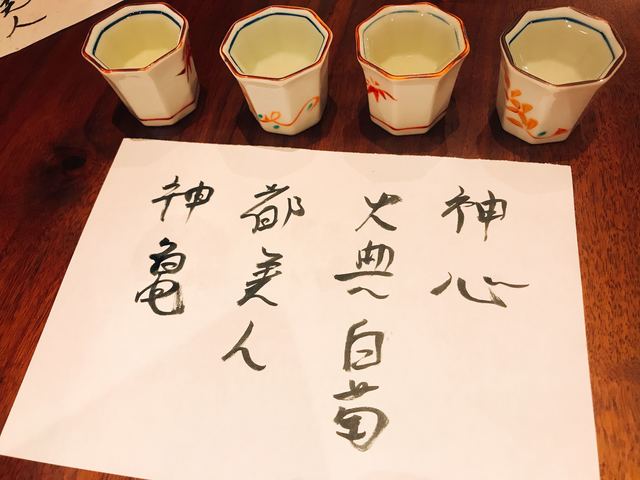 神心
大典白菊
都美人
神亀
美人